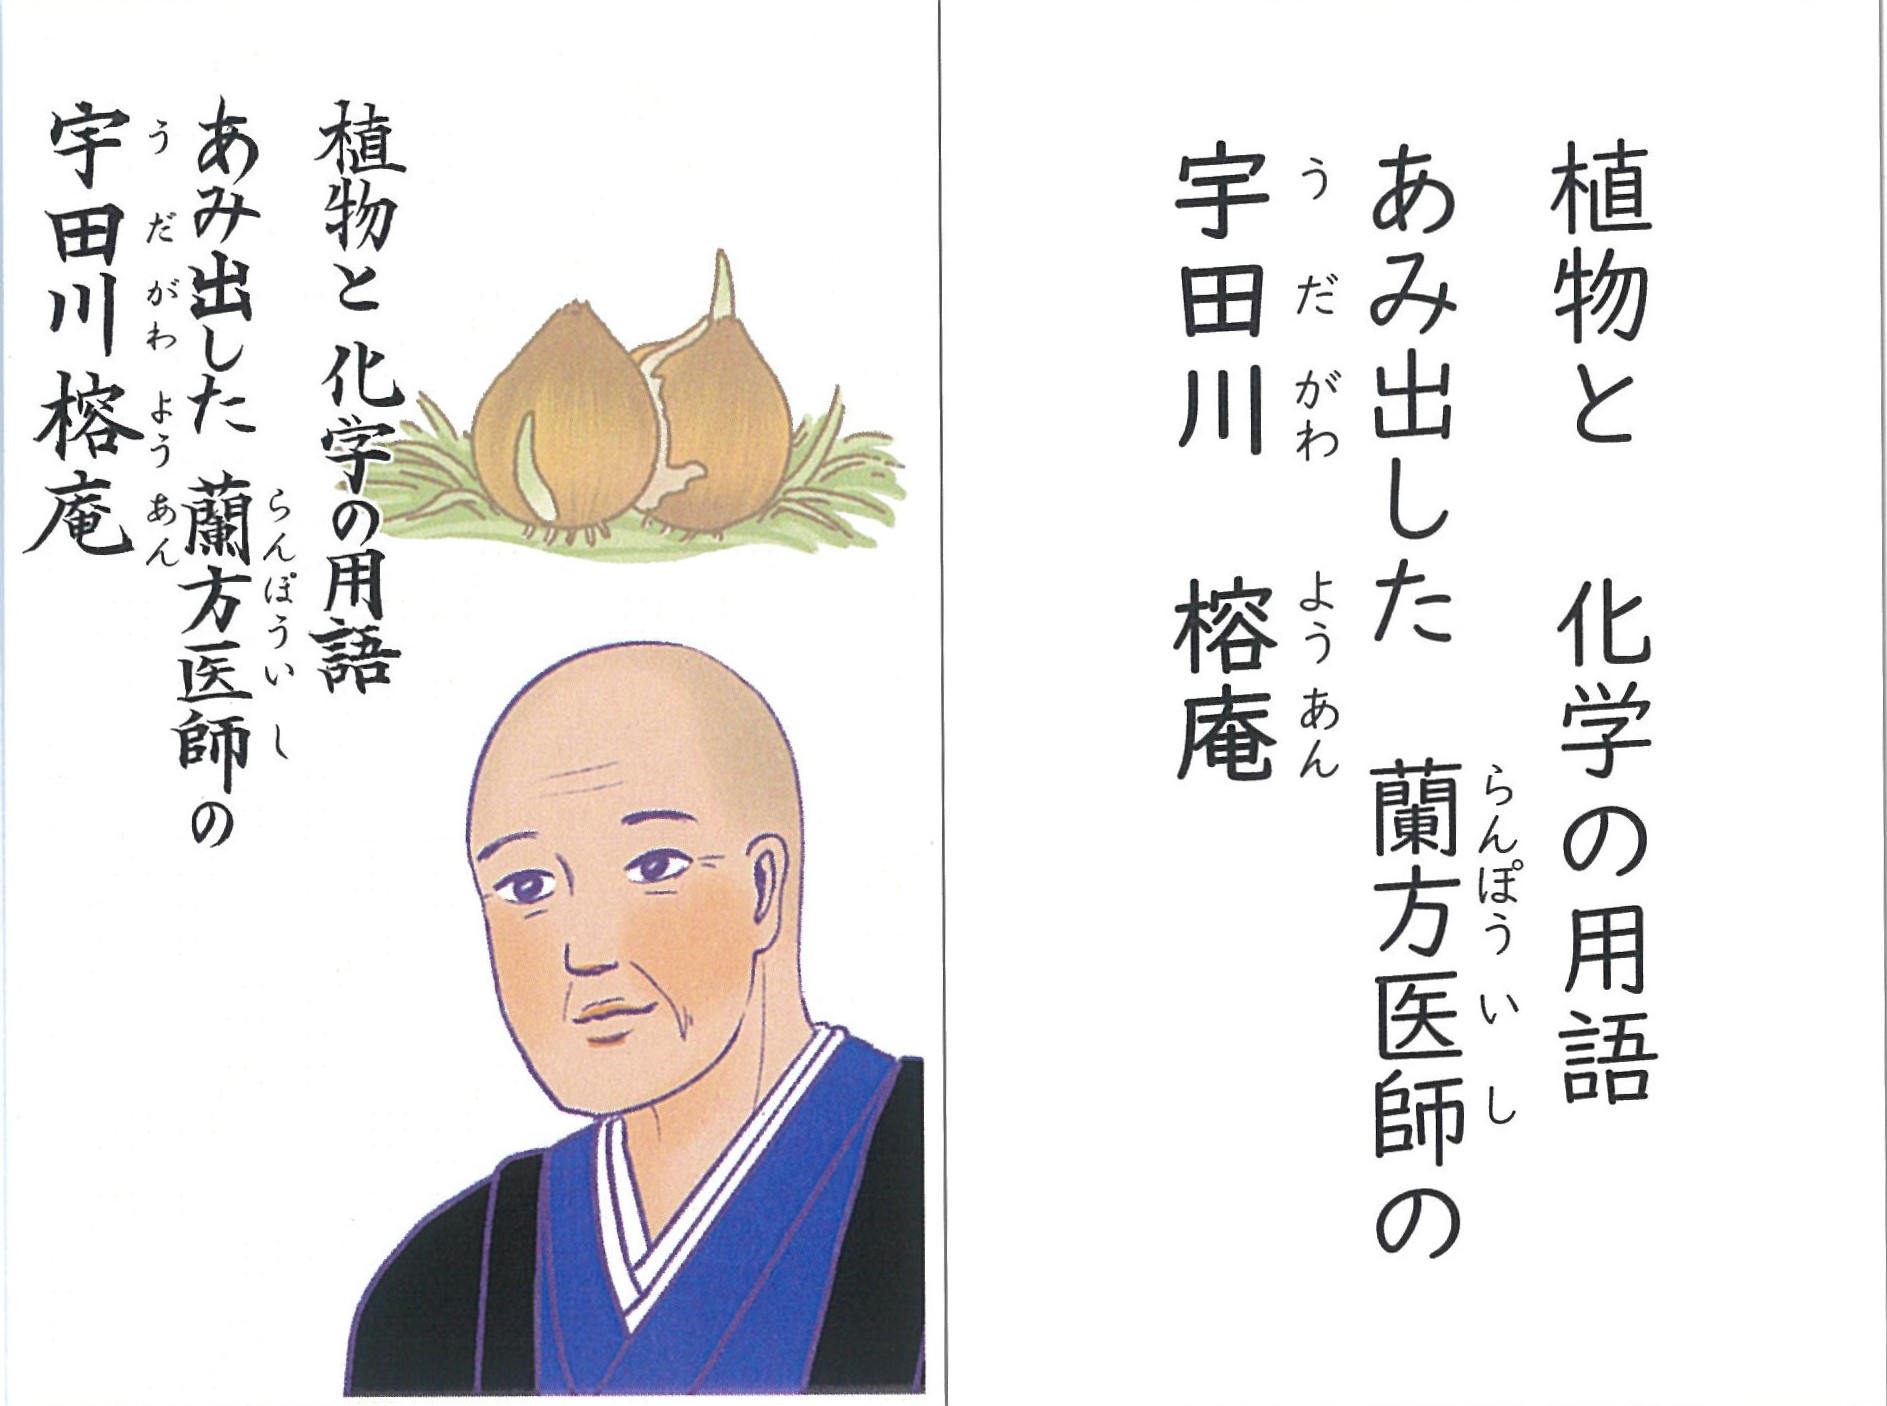 植物と 化学の用語
あみ出した 蘭方医師の
らんぽういし
宇田川榕庵
うだがわようあん
植物と 化学の用語
あみ出した 蘭方医師の
らんぽういし
宇田川 榕庵
うだがわ ようあん